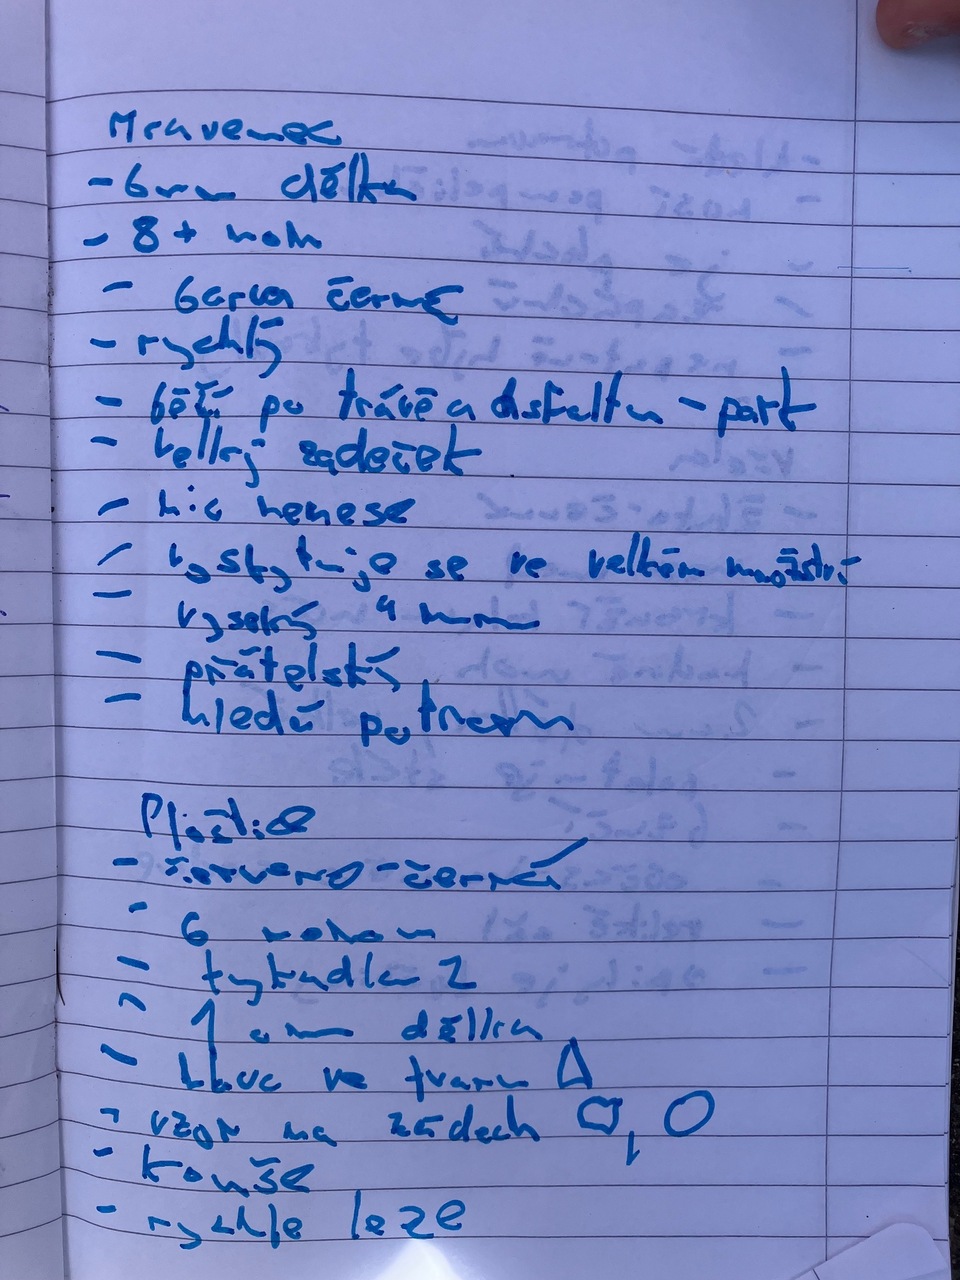 Mravenec
- 6mm délka
- 8+ noh
- barva černé
- rychlý
- běží po trávě a asfaltu - park
- velký zadeček
- nic nenese
- vyskytuje se ve velkém množství
- vysoký 4 mm
- přátelský
- hledá potravu
Ploštice
- červeno-černá
- 6 nohou
- tykadla 2
- 1 cm délka
- hlava ve tvaru
- vzor na zádech
- kouše
- rychle leze